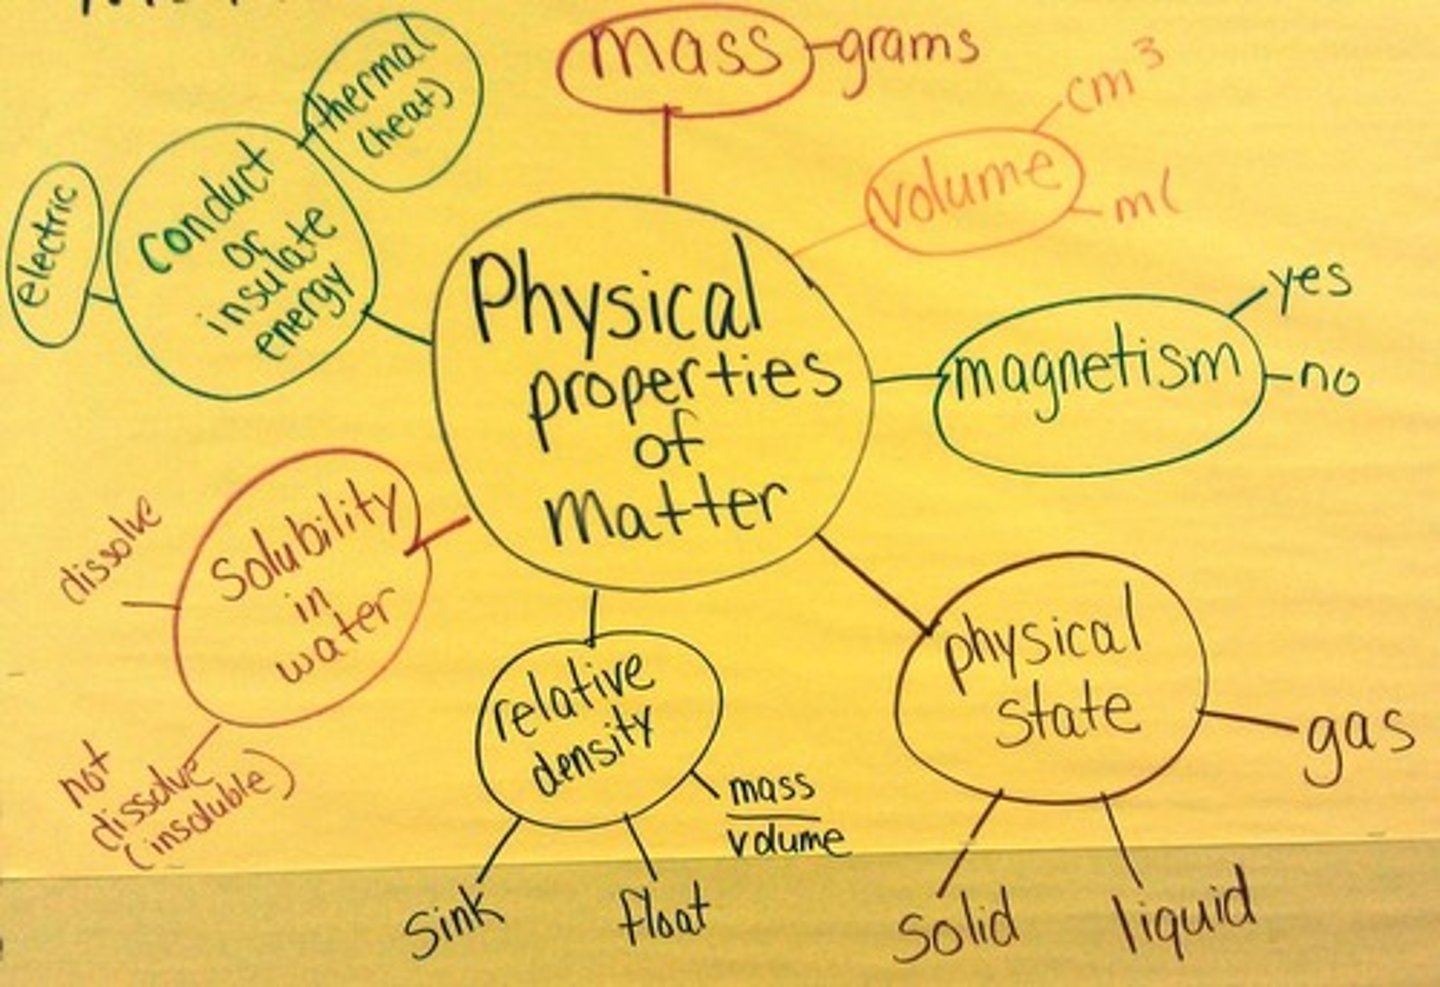 mass
grams
thermal
(heat)
cm³
volume
ml
electric
conduct
or
insulate
energy
Physical
properties
of
Matter
yes
magnetism
no
Solubility
in
water
dissolve
not
dissolve
(insoluble)
relative
density
mass
volume
sink
float
physical
state
gas
solid
liquid